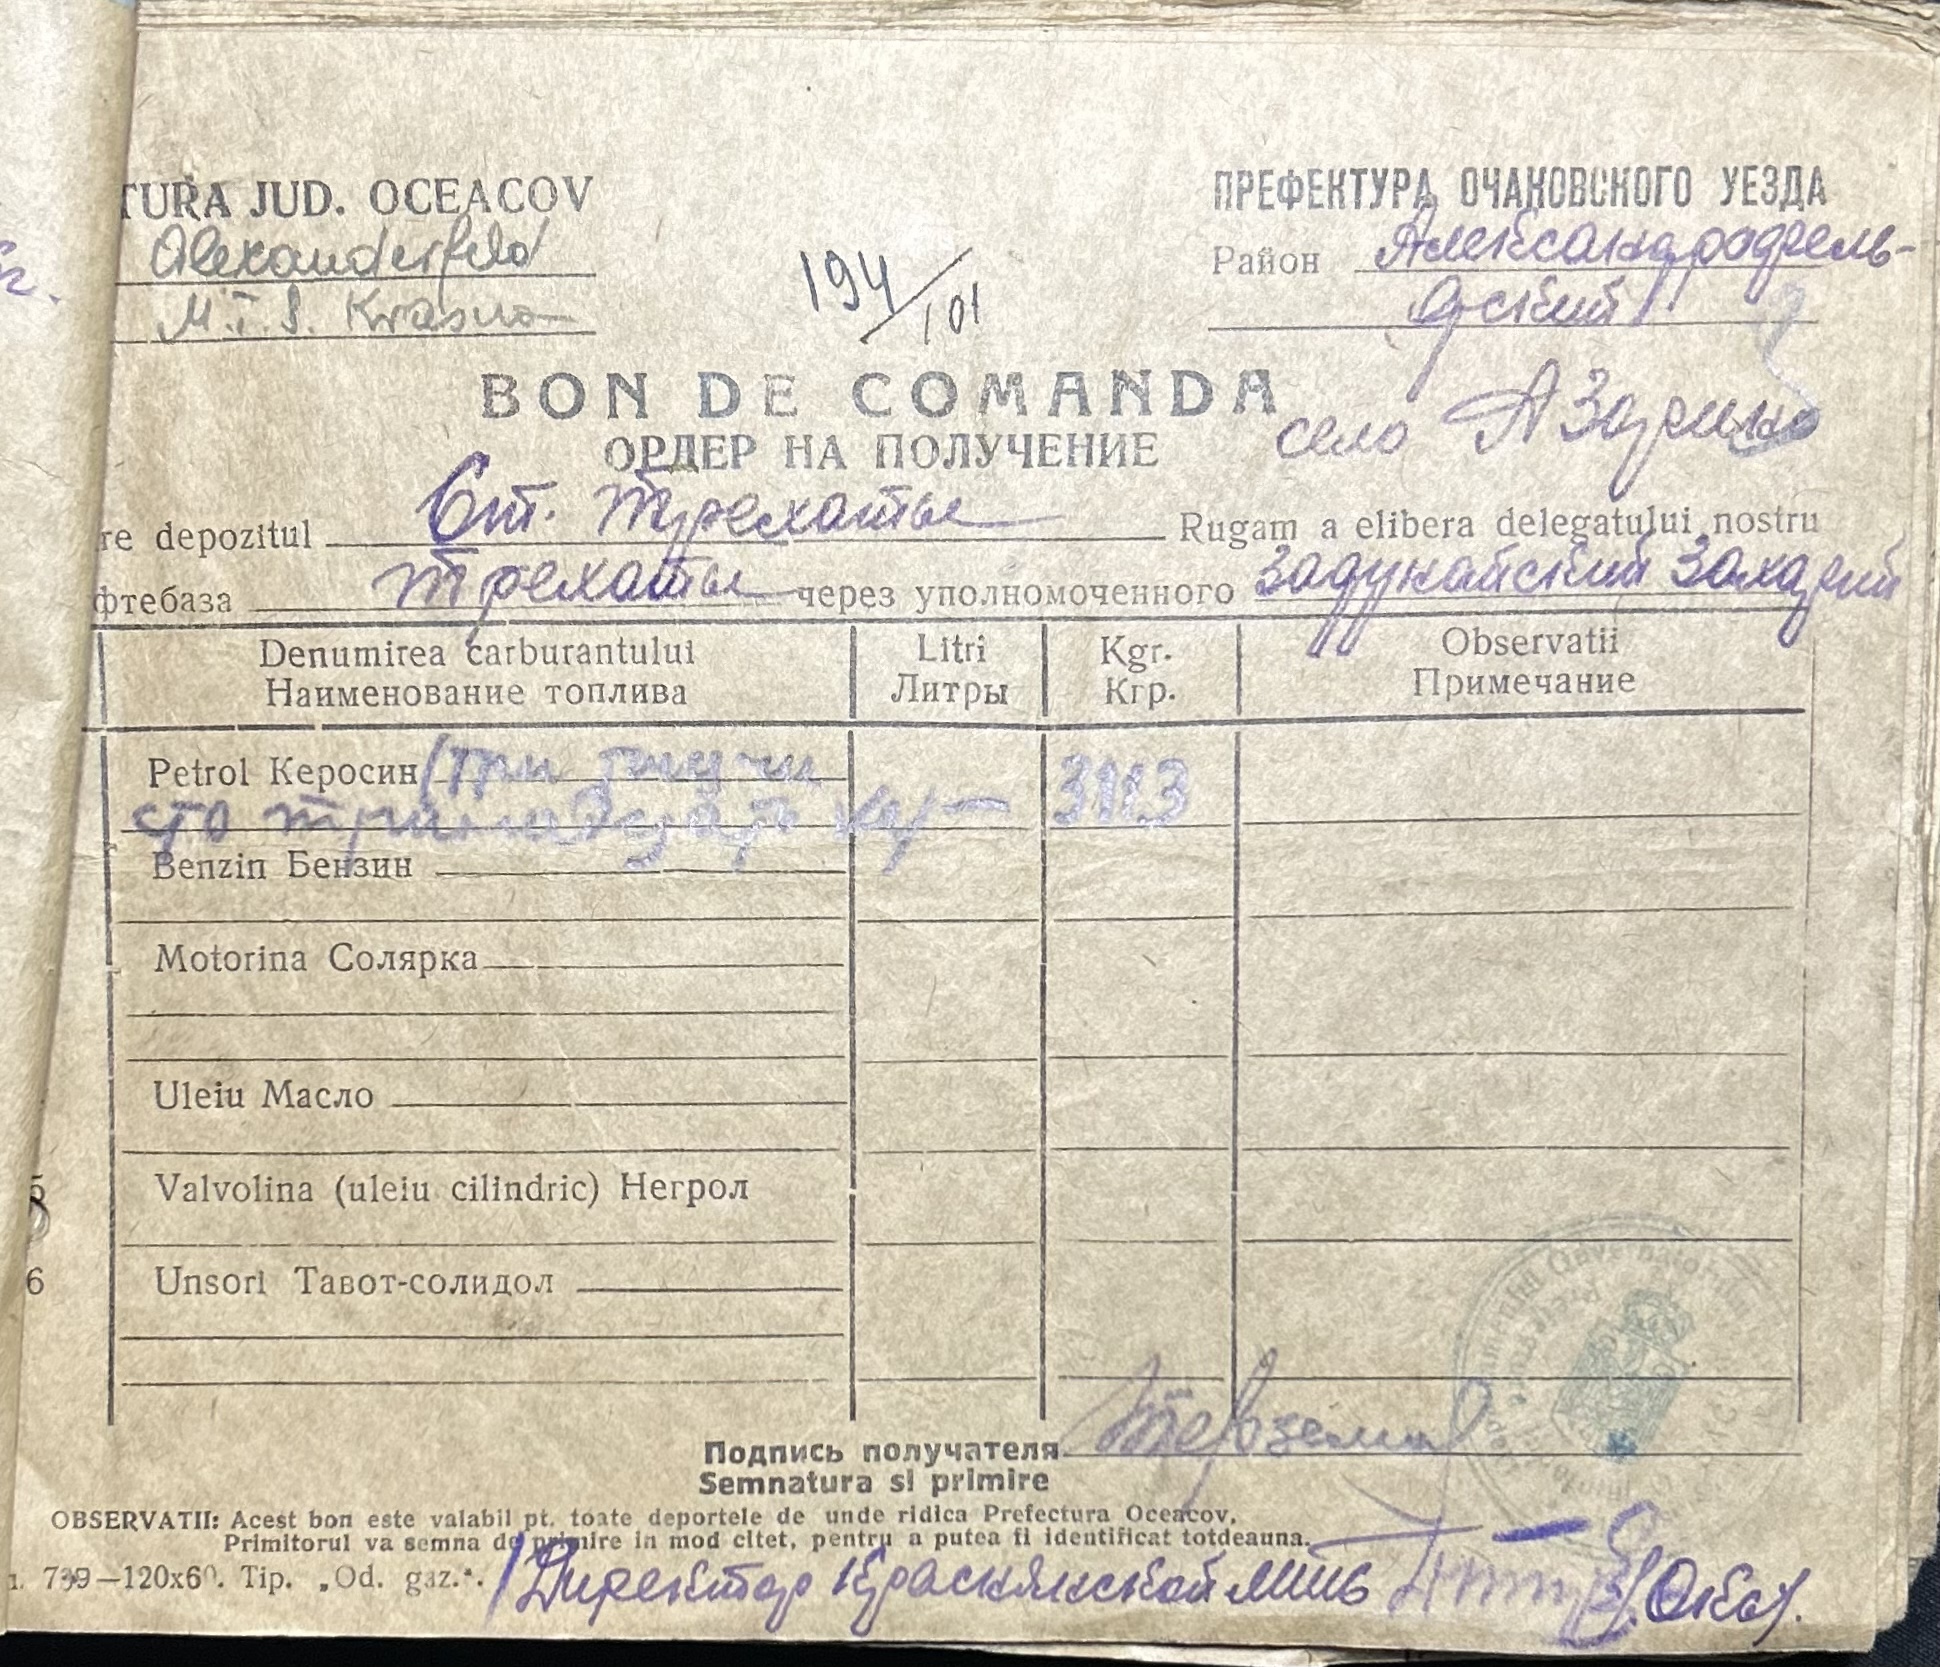 TURA JUD. OCEACOV
ПРЕФЕКТУРА ОЧАКОВСКОГО УЕЗДА
Alexanderfeld
Район Александрофель-
дский
M.T.S. Krasno
194/101
BON DE COMANDA
ОРДЕР НА ПОЛУЧЕНИЕ
село
re depozitul Ст. Трехаты Rugam a elibera delegatului nostru
фтебаза Трехаты через уполномоченного Задунайский Захарий
Denumirea carburantului Litri Kgr. Observatii
Наименование топлива Литры Кгр. Примечание
Petrol Керосин (три тысячи
сто тринадцать кг) — 3113
Benzin Бензин
Motorina Солярка
Uleiu Масло
Valvolina (uleiu cilindric) Негрол
Unsori Тавот-солидол
6
Подпись получателя
Semnatura si primire
OBSERVATII: Acest bon este valabil pt. toate deportele de unde ridica Prefectura Oceacov.
Primitorul va semna de primire in mod citet, pentru a putea fi identificat totdeauna.
739—120x60. Tip. „Od. gaz.".
Директор Краснянской МТС